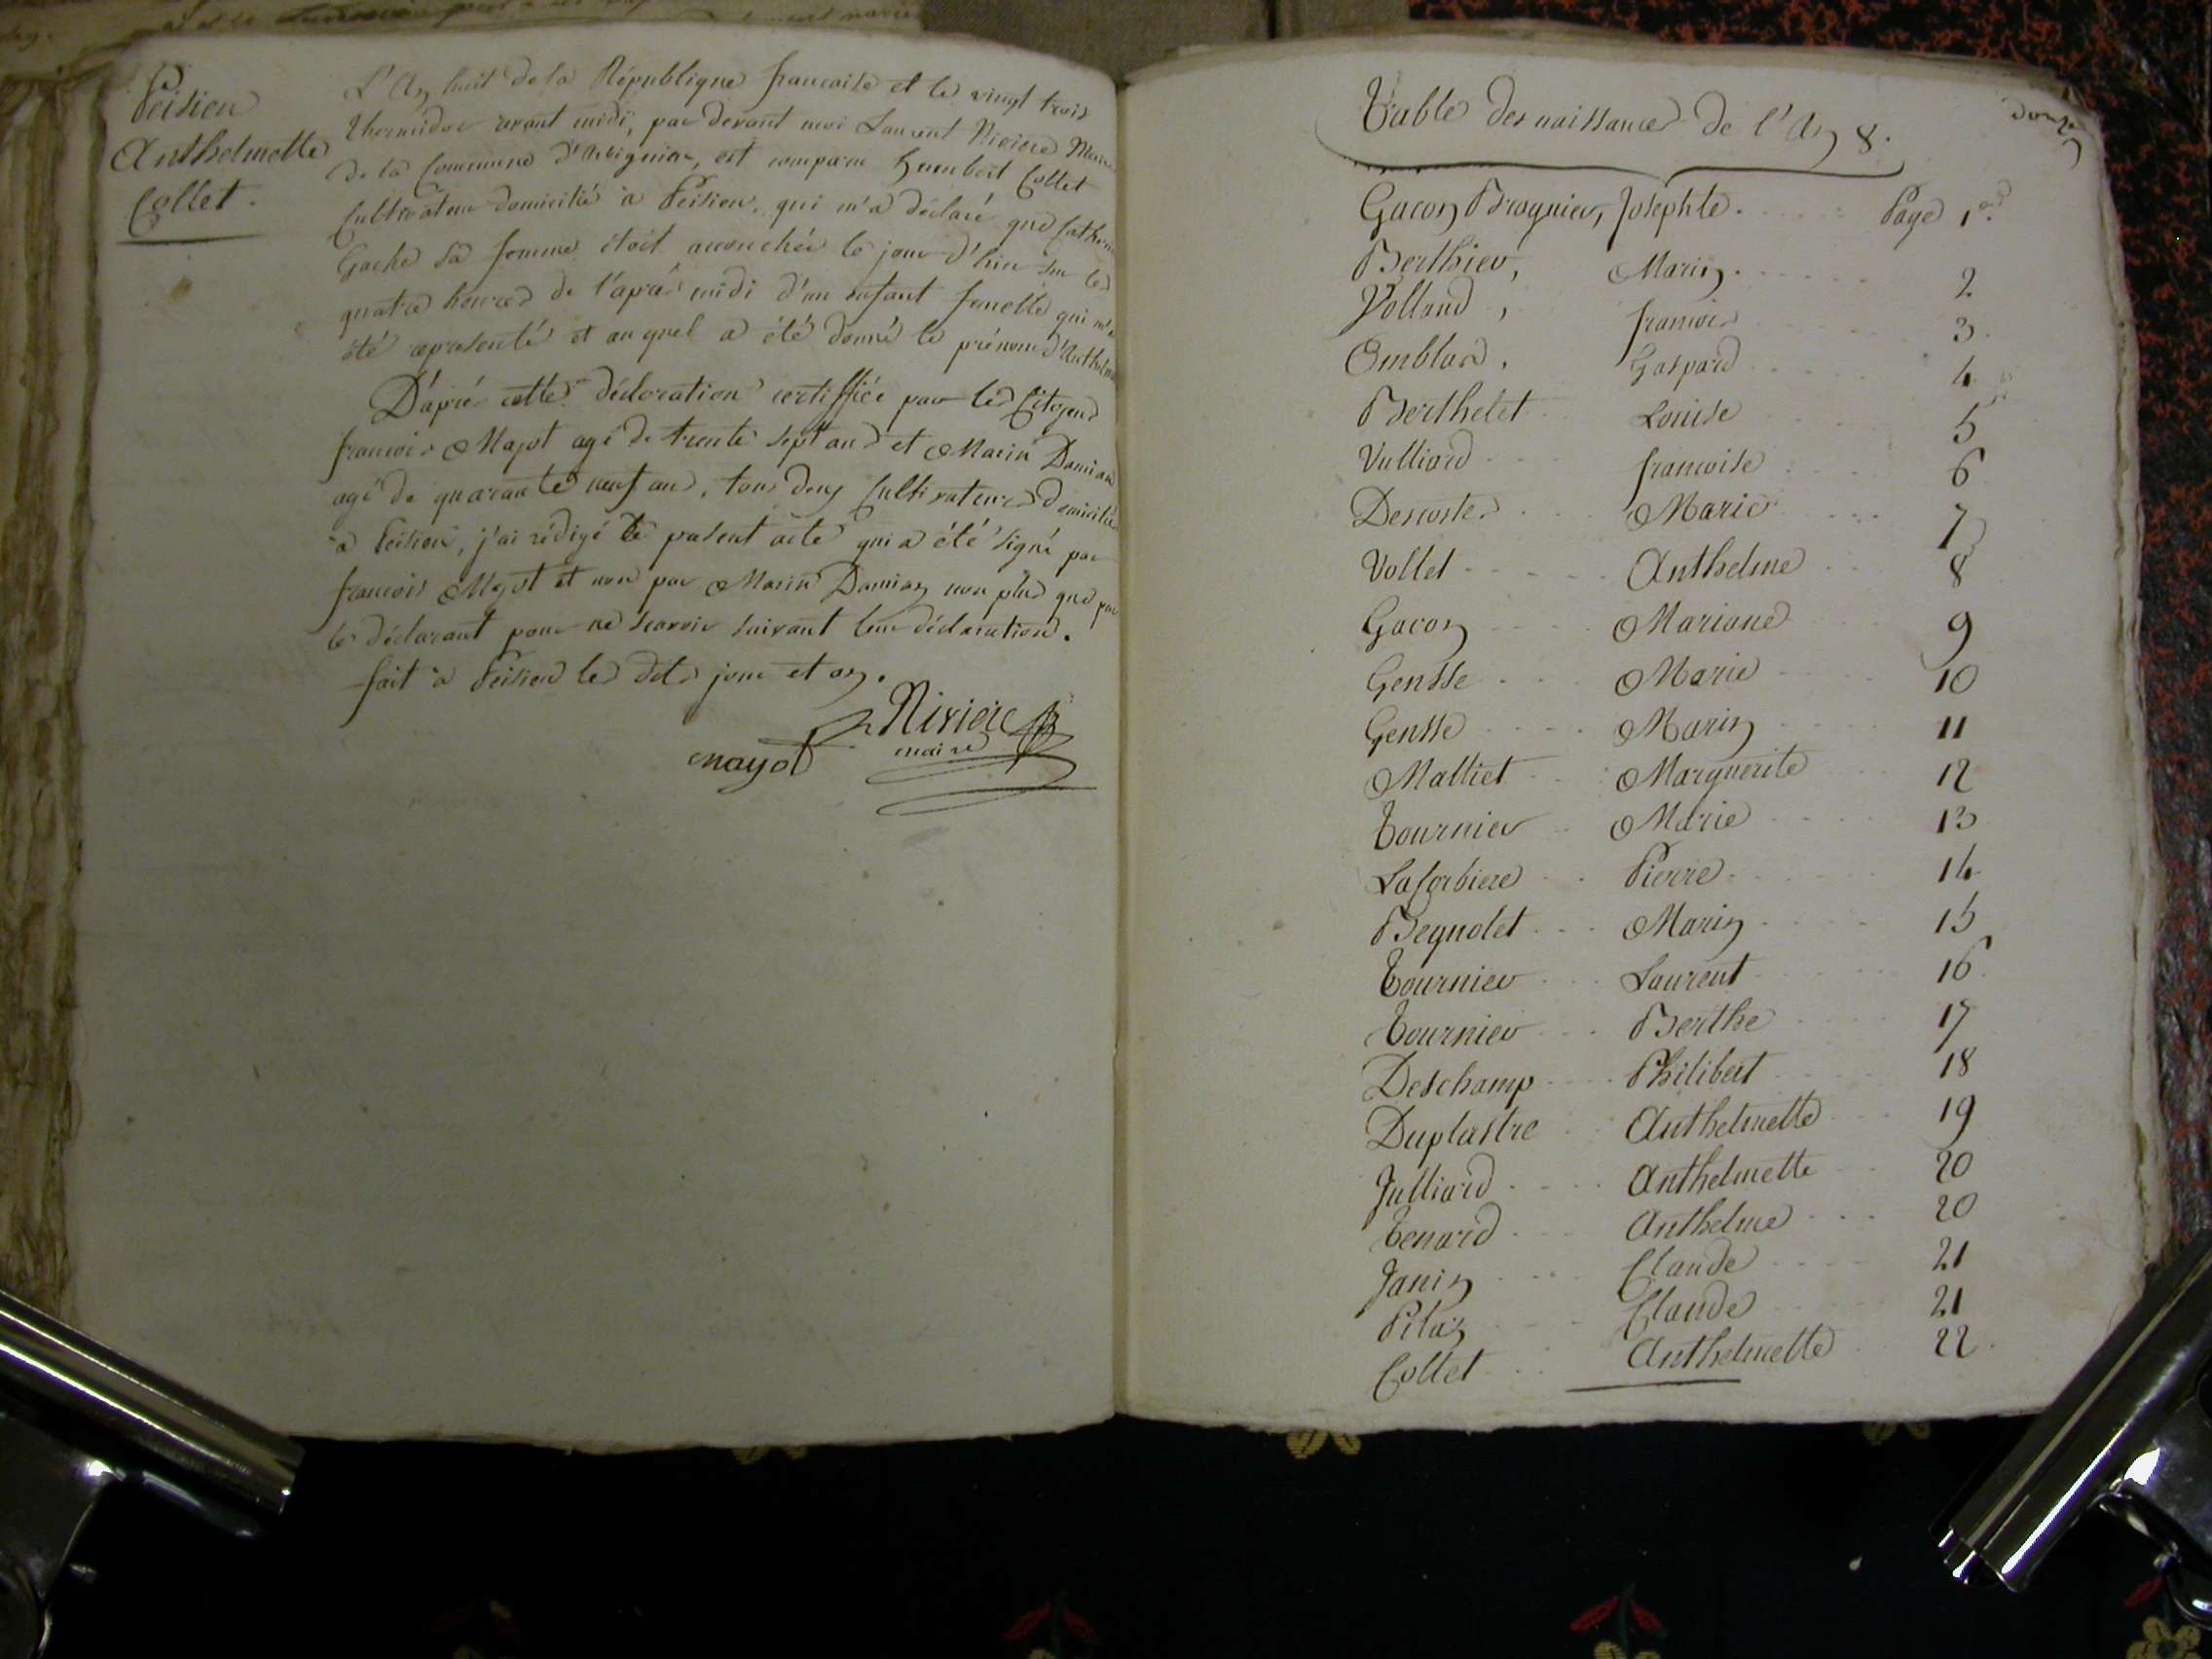 Peisieu
Anthelmette
Collet.
L'An huit de la République francaise et le vingt trois
thermidor avant midi, par devant moi Laurent Riviere Maire
de la Commune d'Arbignieu, est comparu humbert Collet
Cultivateur domicilié à Peisieu, qui m'a déclaré que Catherine
Gache sa femme étoit accouchée le jour d'hier sur les
quatre heures de l'après midi d'un enfant femelle qui m'a
été représenté et au quel a été donné le prénom d'Anthelmette
D'après cette déclaration certiffiée par les Citoyens
francois Mayot agé de trente sept ans et Marin Damian
agé de quarante neuf ans, tous deux Cultivateurs domiciliés
à Peisieu, j'ai rédigé le présent acte qui a été signé par
francois Mayot et non par Marin Damian non plus que par
le déclarant pour ne scavoir suivant leur déclaration.
fait à Peisieu les dits jour et an.
Riviere
mayot maire
Table des naissances de l'An 8.
douze
Gacon Brognier, Josephte. Page 1ere
Berthier, Marin. 2
Volland, francois 3
Emblard, Gaspard 4
Berthelet Louise 5
Vulliard francoise 6
Descostes Marie 7
Vollet Anthelme 8
Gacon Mariane 9
Gensse Marie 10
Gensse Marin 11
Malliet Marguerite 12
Tournier Marie 13
Lacorbiere Pierre 14
Begnolet Marin 15
Tournier Laurent 16
Tournier Berthe 17
Deschamp Philibert 18
Duplastre Anthelmette 19
Julliard Anthelmette 20
Tenard Anthelme 20
Janin Claude 21
Pilaz Claude 21
Collet Anthelmette 22.